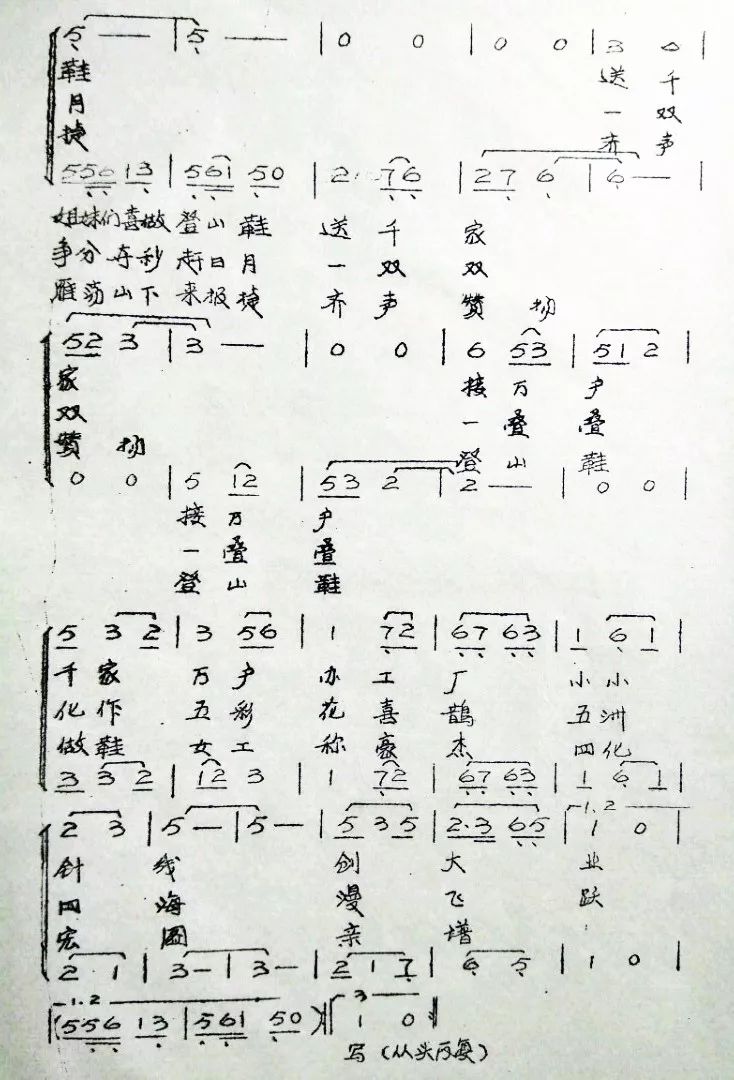 5 — — | 5 — — | 0 0 | 0 0 | 3 6 |
鞋 送 千
月 一 双
捷 齐 声
556 13 | 561 50 | 2 76 | 27 6 | 6 — |
姐妹们喜做 登山 鞋 送 千 家
争分夺秒 赶日月 一 双 双
雁荡山下 来报捷 齐 声 赞 扬
52 3 | 3 — | 0 0 | 6 53 | 51 2 |
家 接 万 户
双 一 叠 叠
赞 扬 登 山 鞋
0 0 | 5 12 | 53 2 | 2 — | 0 0 |
接 万 户
一 叠 叠
登 山 鞋
5 3 2 | 3 56 | 1 72 | 67 63 | 1 6 1 |
千 家 万 户 办 工 厂 小 小
化 作 五 彩 花 喜 鹊 五 洲
做 鞋 女 工 称 豪 杰 四 化
3 3 2 | 12 3 | 1 72 | 67 63 | 1 6 1 |
2 3 | 5 — | 5 — | 5 3 5 | 2·3 65 | 1.2 1 0 |
针 线 创 大 业
四 海 漫 飞 跃
宏 图 亲 增
2 1 | 3 — | 3 — | 2 1 7 | 6 5 | 1 0 |
1.2 (556 13 | 561 50) 3 1 0
写（从头反复）